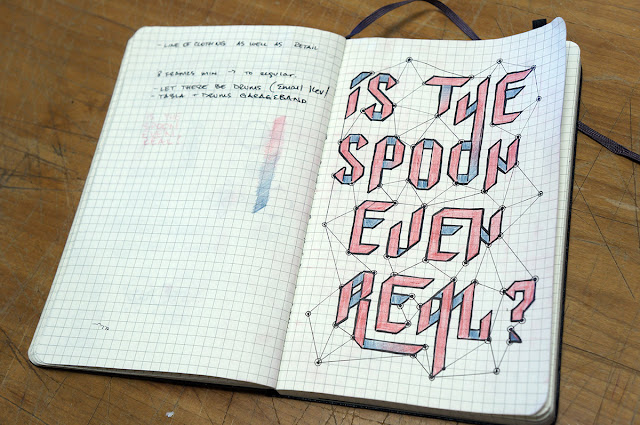 - LINE OF CLOTHING AS WELL AS RETAIL
8 FRAMES MIN → TO REGULAR
- LET THERE BE DRUMS (EMAIL /KEV/
- TABLA + DRUMS GARAGEBAND
IS THE
SPOON
EVEN
REAL?